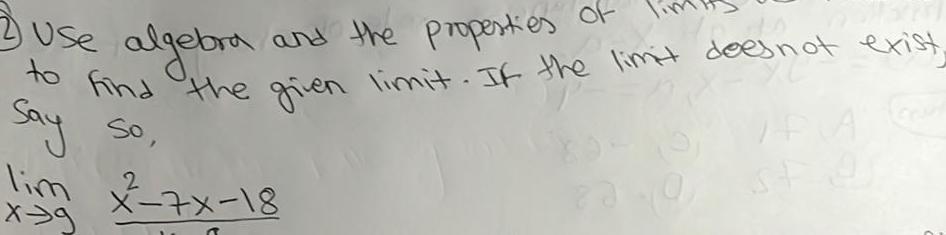 2) Use algebra and the properties of limits
to find the given limit. If the limit does not exist,
Say so,
lim x→9 x²-7x-18